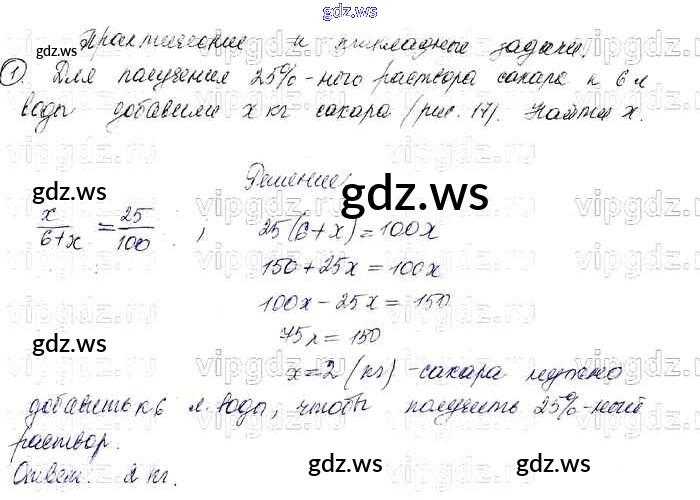 gdz.ws
Практические и прикладные задачи.
1. Для получения 25%-ного раствора сахара к 6 л
воды добавили x кг сахара (рис. 17). Найти x.
Решение:
x/6+x = 25/100 ; 25(6+x)=100x
150+25x=100x
100x-25x=150
75x=150
x=2 (кг) - сахара нужно
добавить к 6 л воды, чтобы получить 25%-ный
раствор.
Ответ: 2 кг.
gdz.ws
gdz.ws
gdz.ws
gdz.ws
gdz.ws
gdz.ws
gdz.ws
gdz.ws
gdz.ws
vipgdz.ru